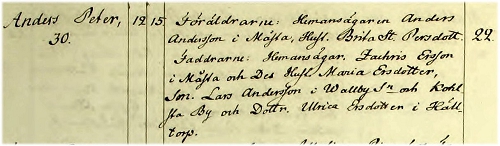 Anders Peter, 12 15 Föräldrarne: Hemansägaren Anders
30. Andersson i Måsta, Hust. Brita St. Persdott. 22
Faddrarne: Hemansägar. Zachris Ersson
i Måsta och Des Hust. Maria Ersdotter,
Son. Lars Andersson i Wallby Sn och Kohl
sta By och Dottr. Ulrica Ersdotter i Häll
torp.